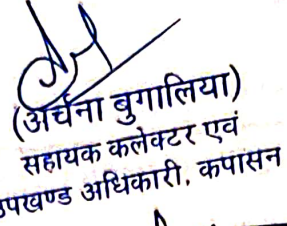 (अर्चना बुगालिया)
सहायक कलेक्टर एवं
उपखण्ड अधिकारी, कपासन